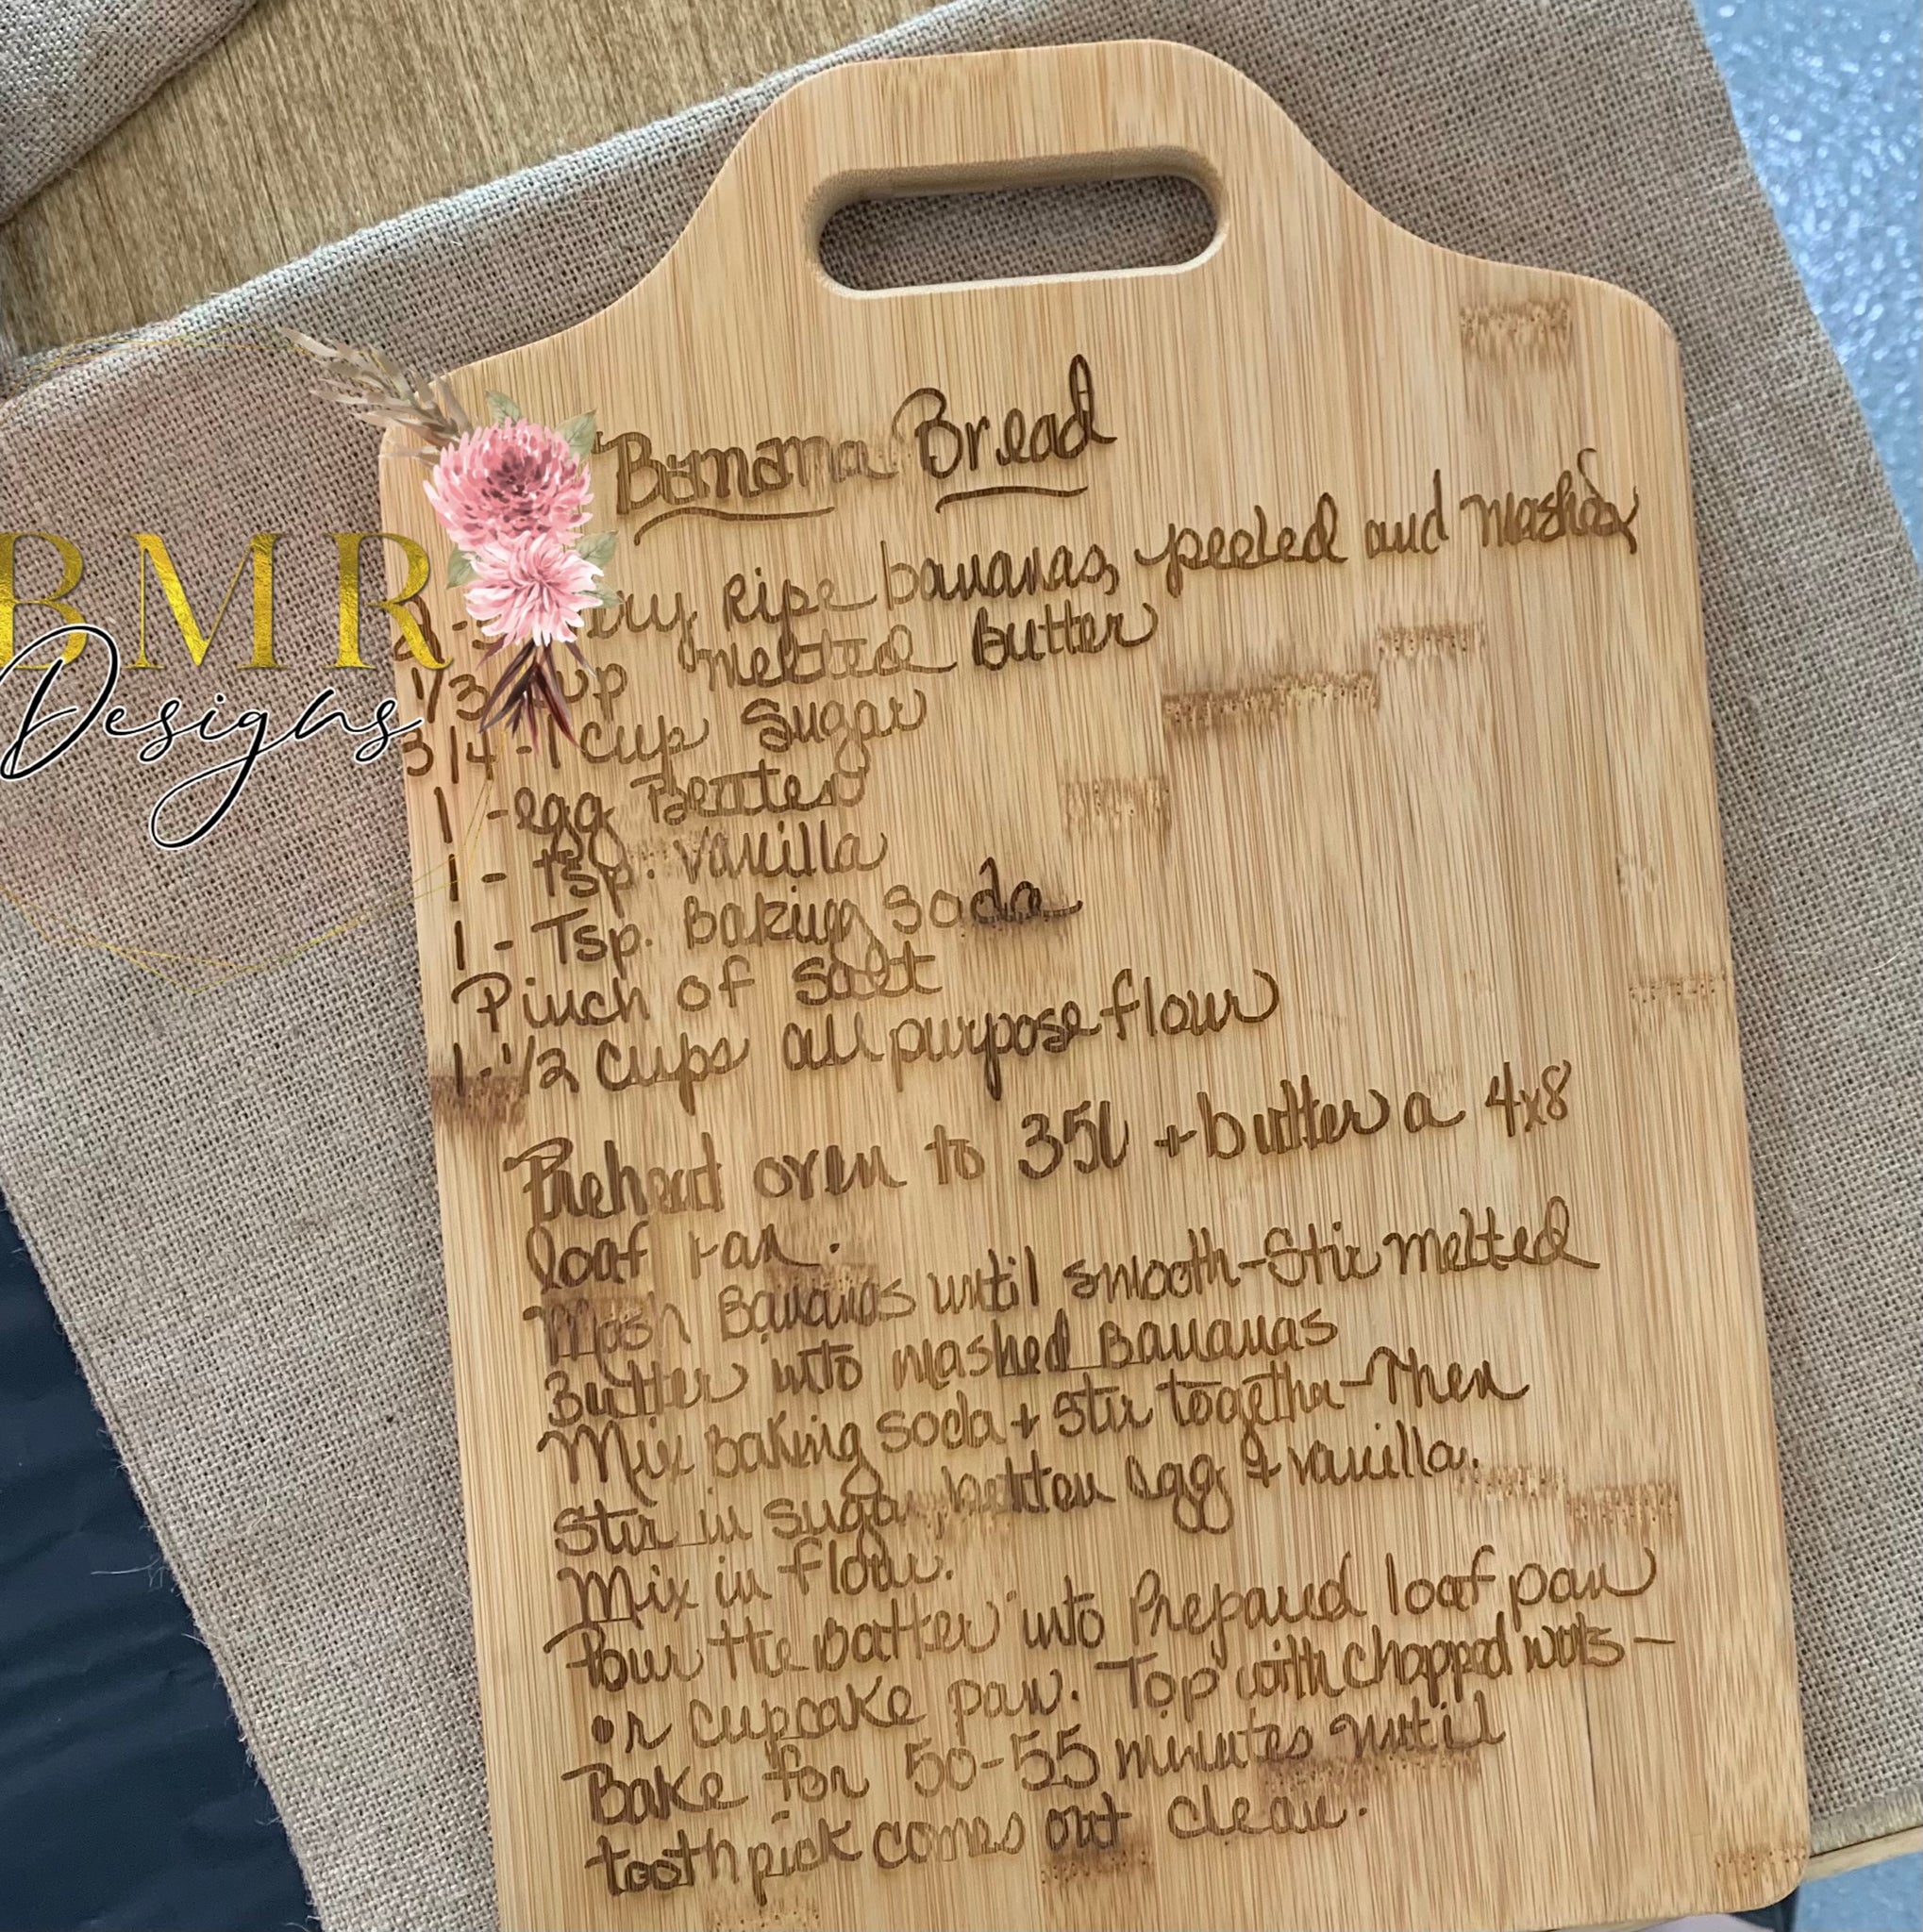 Banana Bread
BMR
Designs
2 - ripe bananas, peeled and mashed
1/3 cup melted Butter
3/4 - 1 cup Sugar
1 - egg Beaten
1 - tsp. vanilla
1 - Tsp. Baking soda
Pinch of salt
1-1/2 cups all purpose flour
Preheat oven to 350 + butter a 4x8
loaf pan.
Mash Bananas until smooth - Stir melted
Butter into mashed Bananas
Mix Baking soda + Stir together - Then
Stir in sugar, beaten egg & vanilla.
Mix in flour.
Pour the Batter into Prepared loaf pan
or cupcake pan. Top with chopped nuts -
Bake for 50-55 minutes until
toothpick comes out clean.